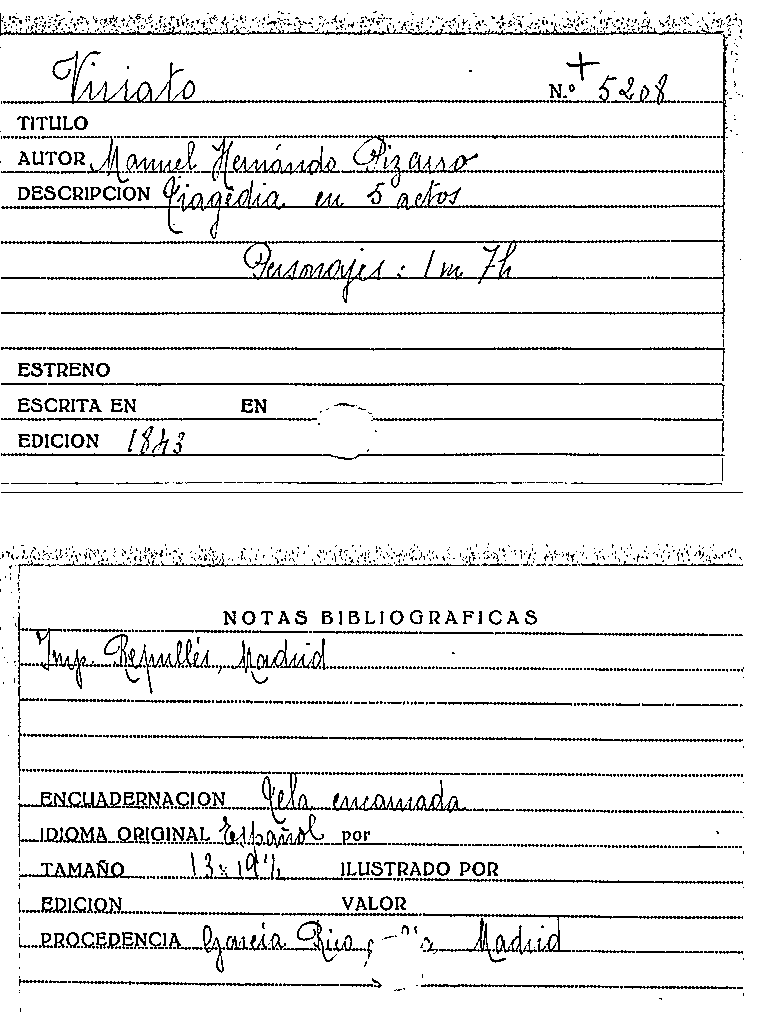 Viriato
N.º + 5208
TITULO
AUTOR Manuel Hernándo Pizarro
DESCRIPCION Tragedia en 5 actos
Personajes: 1 m 7h
ESTRENO
ESCRITA EN EN
EDICION 1843
NOTAS BIBLIOGRAFICAS
Imp. Repullés, Madrid
ENCUADERNACION Tela encarnada
IDIOMA ORIGINAL Español por
TAMAÑO 13 x 19 ILUSTRADO POR
EDICION VALOR
PROCEDENCIA García Rico Madrid